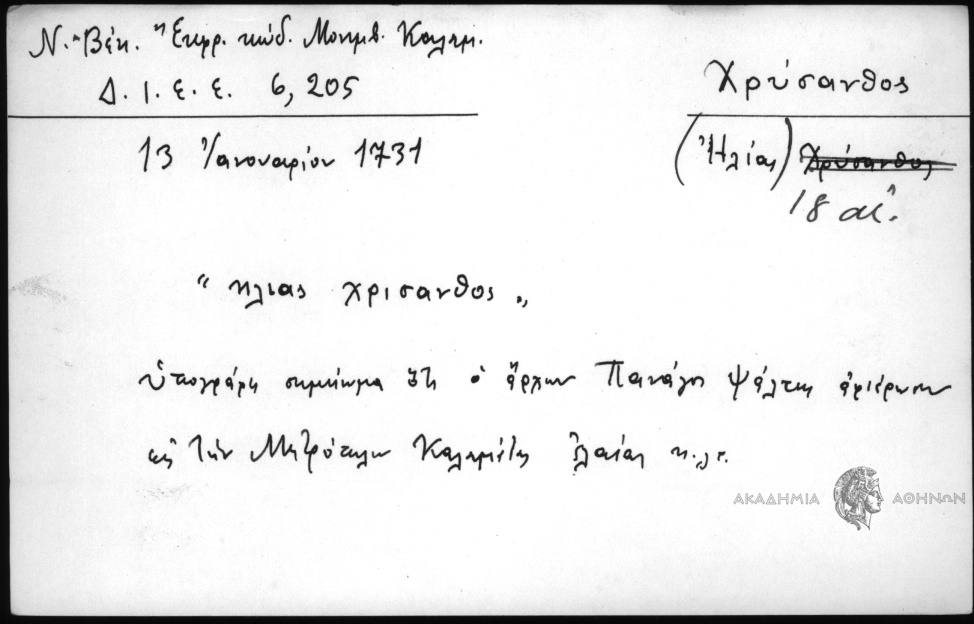 Ν. Βέη. Ἔκφρ. κώδ. Μονεμβ. Καλαμ.
Δ. Ι. Ε. Ε. 6, 205
Χρύσανθος
13 Ἰανουαρίου 1731
(Ἠλίας) Χρύσανθος
18 αἰ.
“ ηλιας χρισανθος „
ὑπογράφει σημείωμα ὅτι ὁ ἄρχων Πανάγος Ψάλτης ἀφιέρωσεν
εἰς τὴν Μητρόπολιν Καλαμάτας ἐλαίας κ.λπ.
ΑΚΑΔΗΜΙΑ ΑΘΗΝΩΝ